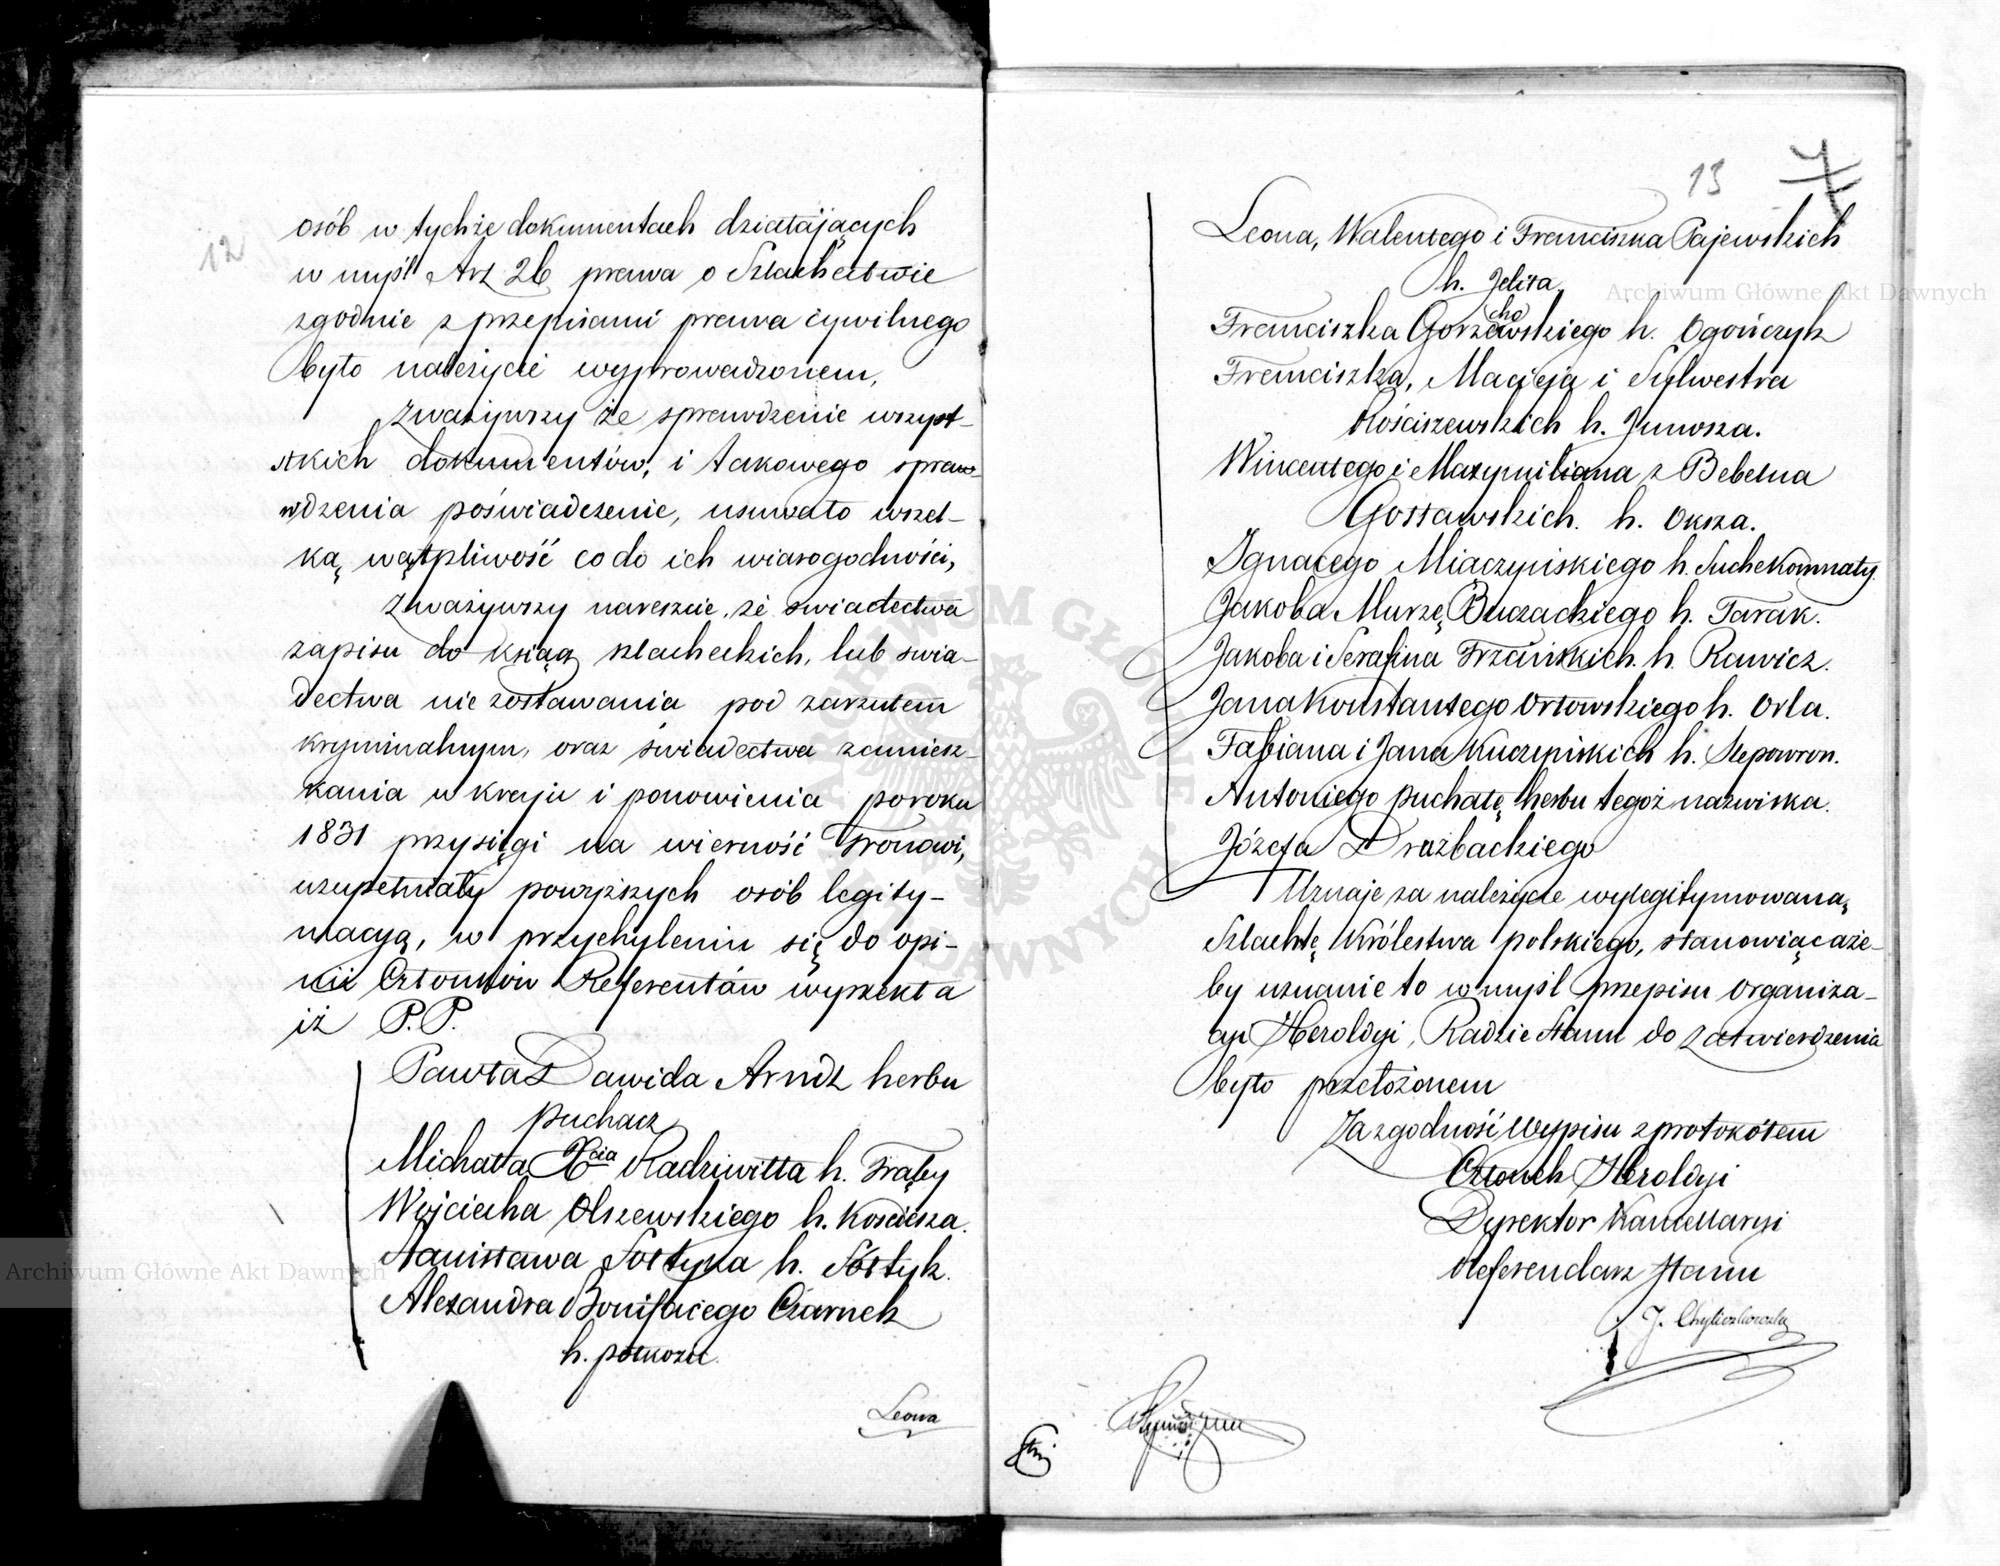 12
osób w tychże dokumentach działających
w myśl Art 26 prawa o Szlachectwie
zgodnie z przepisami prawa cywilnego
było należycie wyprowadzonem,
Zważywszy że sprawdzenie wszyst-
stkich dokumentów, i takowego spraw-
wdzenia poświadczenie, usuwało wszel-
ką wątpliwość codo ich wiarogodności,
Zważywszy nareszcie, że swiadectwa
zapisu do ksiąg szlacheckich, lub swia-
dectwa nie zostawania pod zarzutem
kryminalnym, oraz świadectwa zamiesz-
kania w kraju i ponowienia poroku
1831 przysięgi na wierność Tronowi,
uzupełniały powyższych osób legity-
macyą, w przychyleniu się do opi-
nii Członków Referentów wyrzekła
iż P.P.
Pawła Dawida Arndt herbu
puhacz
Michała Xcia Radziwiłła h. Trąby
Wojciecha Olszewskiego h. Kościesza.
Stanisława Sołtyka h. Sołtyk.
Alexandra Bonifacego Czarnek
h. połkozic.
Leona
13
Leona, Walentego i Franciszka Pajewskich
h. Jelita
Franciszka Gorzechowskiego h. Ogończyk
Franciszka, Macieja i Sylwestra
Kościszewskich h. Junosza.
Wincentego i Maxymiliana z Bebelna
Gosławskich. h. Oksza.
Ignacego Miączyńskiego h. Suchekomnaty
Jakoba Murzę Buczackiego h. Tarak.
Jakoba i Serafina Trzcińskich h. Rawicz.
Jana Konstantego Orłowskiego h. Orla.
Fabiana i Jana Kuczyńskich h. Slepowron.
Antoniego puchałę herbu tegoż nazwiska.
Józefa Drużbackiego
Uznaje za należycie wylegitymowaną
Szlachtę Królestwa polskiego, stanowiąc aże-
by uznanie to w myśl przepisu organiza-
cyi Heroldyi, Radzie Stanu do zatwierdzenia
było przełożonem
Za zgodność Wypisu z protokółem
Członek Heroldyi
Dyrektor Kancellaryi
Referendarz Stanu
J. Chyliczkowski
Archiwum Główne Akt Dawnych
Archiwum Główne Akt Dawnych
ARCHIWUM GŁÓWNE AKT DAWNYCH